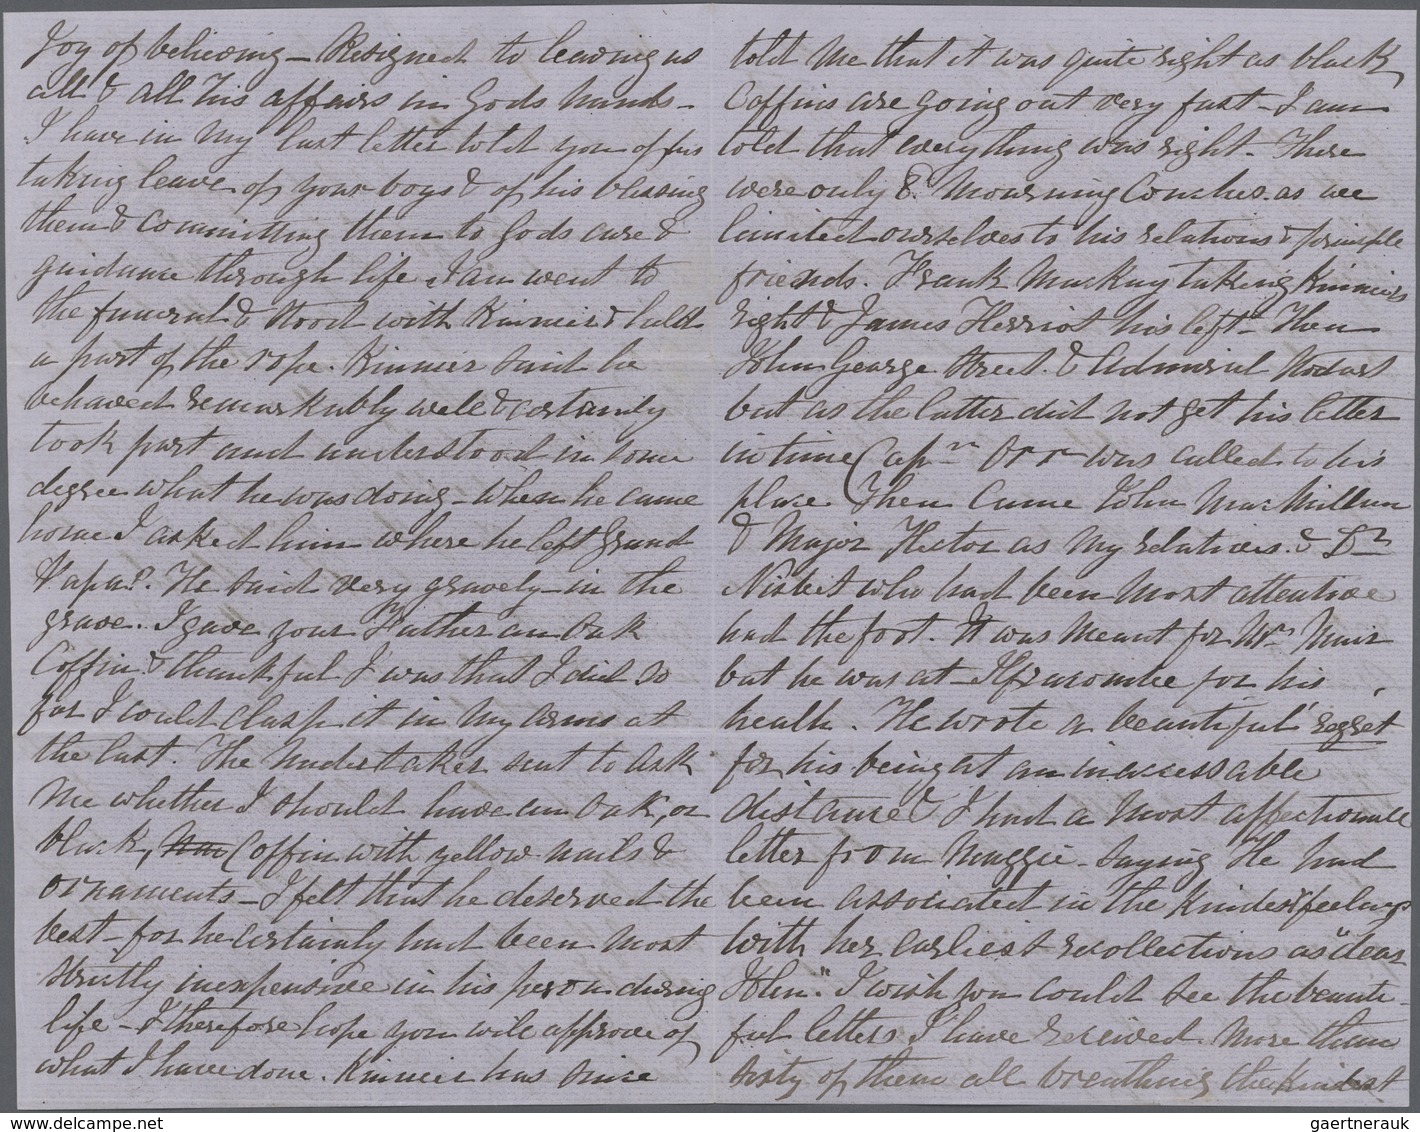 Joy of believing – Resigned to leaving us
all & all his affairs in Gods hands –
I have in my last letter told you of his
taking leave of your boys & of his blessing
them & committing them to Gods care &
guidance through life. Ian went to
the funeral & stood with Kinnier & held
a part of the rope. Kinnier said he
behaved remarkably well & certainly
took part and understood in some
degree what he was doing – when he came
home I asked him where he left Grand
Papa?. He said very gravely – in the
grave. I gave your Father an Oak
Coffin & thankful I was that I did so
for I could clasp it in my arms at
the last. The Undertaker sent to ask
me whether I should have an Oak, or
black, Coffin with yellow nails &
ornaments – I felt that he deserved the
best – for he certainly had been most
strictly inexpensive in his person during
life – & therefore hope you will approve of
what I have done. Kinnier has since
told me that it was quite right as black
Coffins are going out very fast – I am
told that everything was right. There
were only 8 Mourning Coaches. as we
limited ourselves to his relations &
friends. Frank Mackay taking Kinniers
right & James Herriot his left – Then
John George Street. & Admiral
but as the latter did not get his letter
in time Capn Orr was called to his
place. Then Came John MacMillan
& Major Hector as my relatives. & Dr
Nisbet who had been most attentive
had the foot. It was meant for Mr Muir
but he was at Ilfracombe for his
health. He wrote a beautiful regret
for his being at an inaccessable
distance & I had a most affectionate
letter from Maggie – saying He had
been associated in the Kindest feelings
with her earliest recollections as "dear
John." I wish you could see the beauti-
ful letters I have received. More than
sixty of them all breathing the kindest
gaertnerauk @ delcampe.net